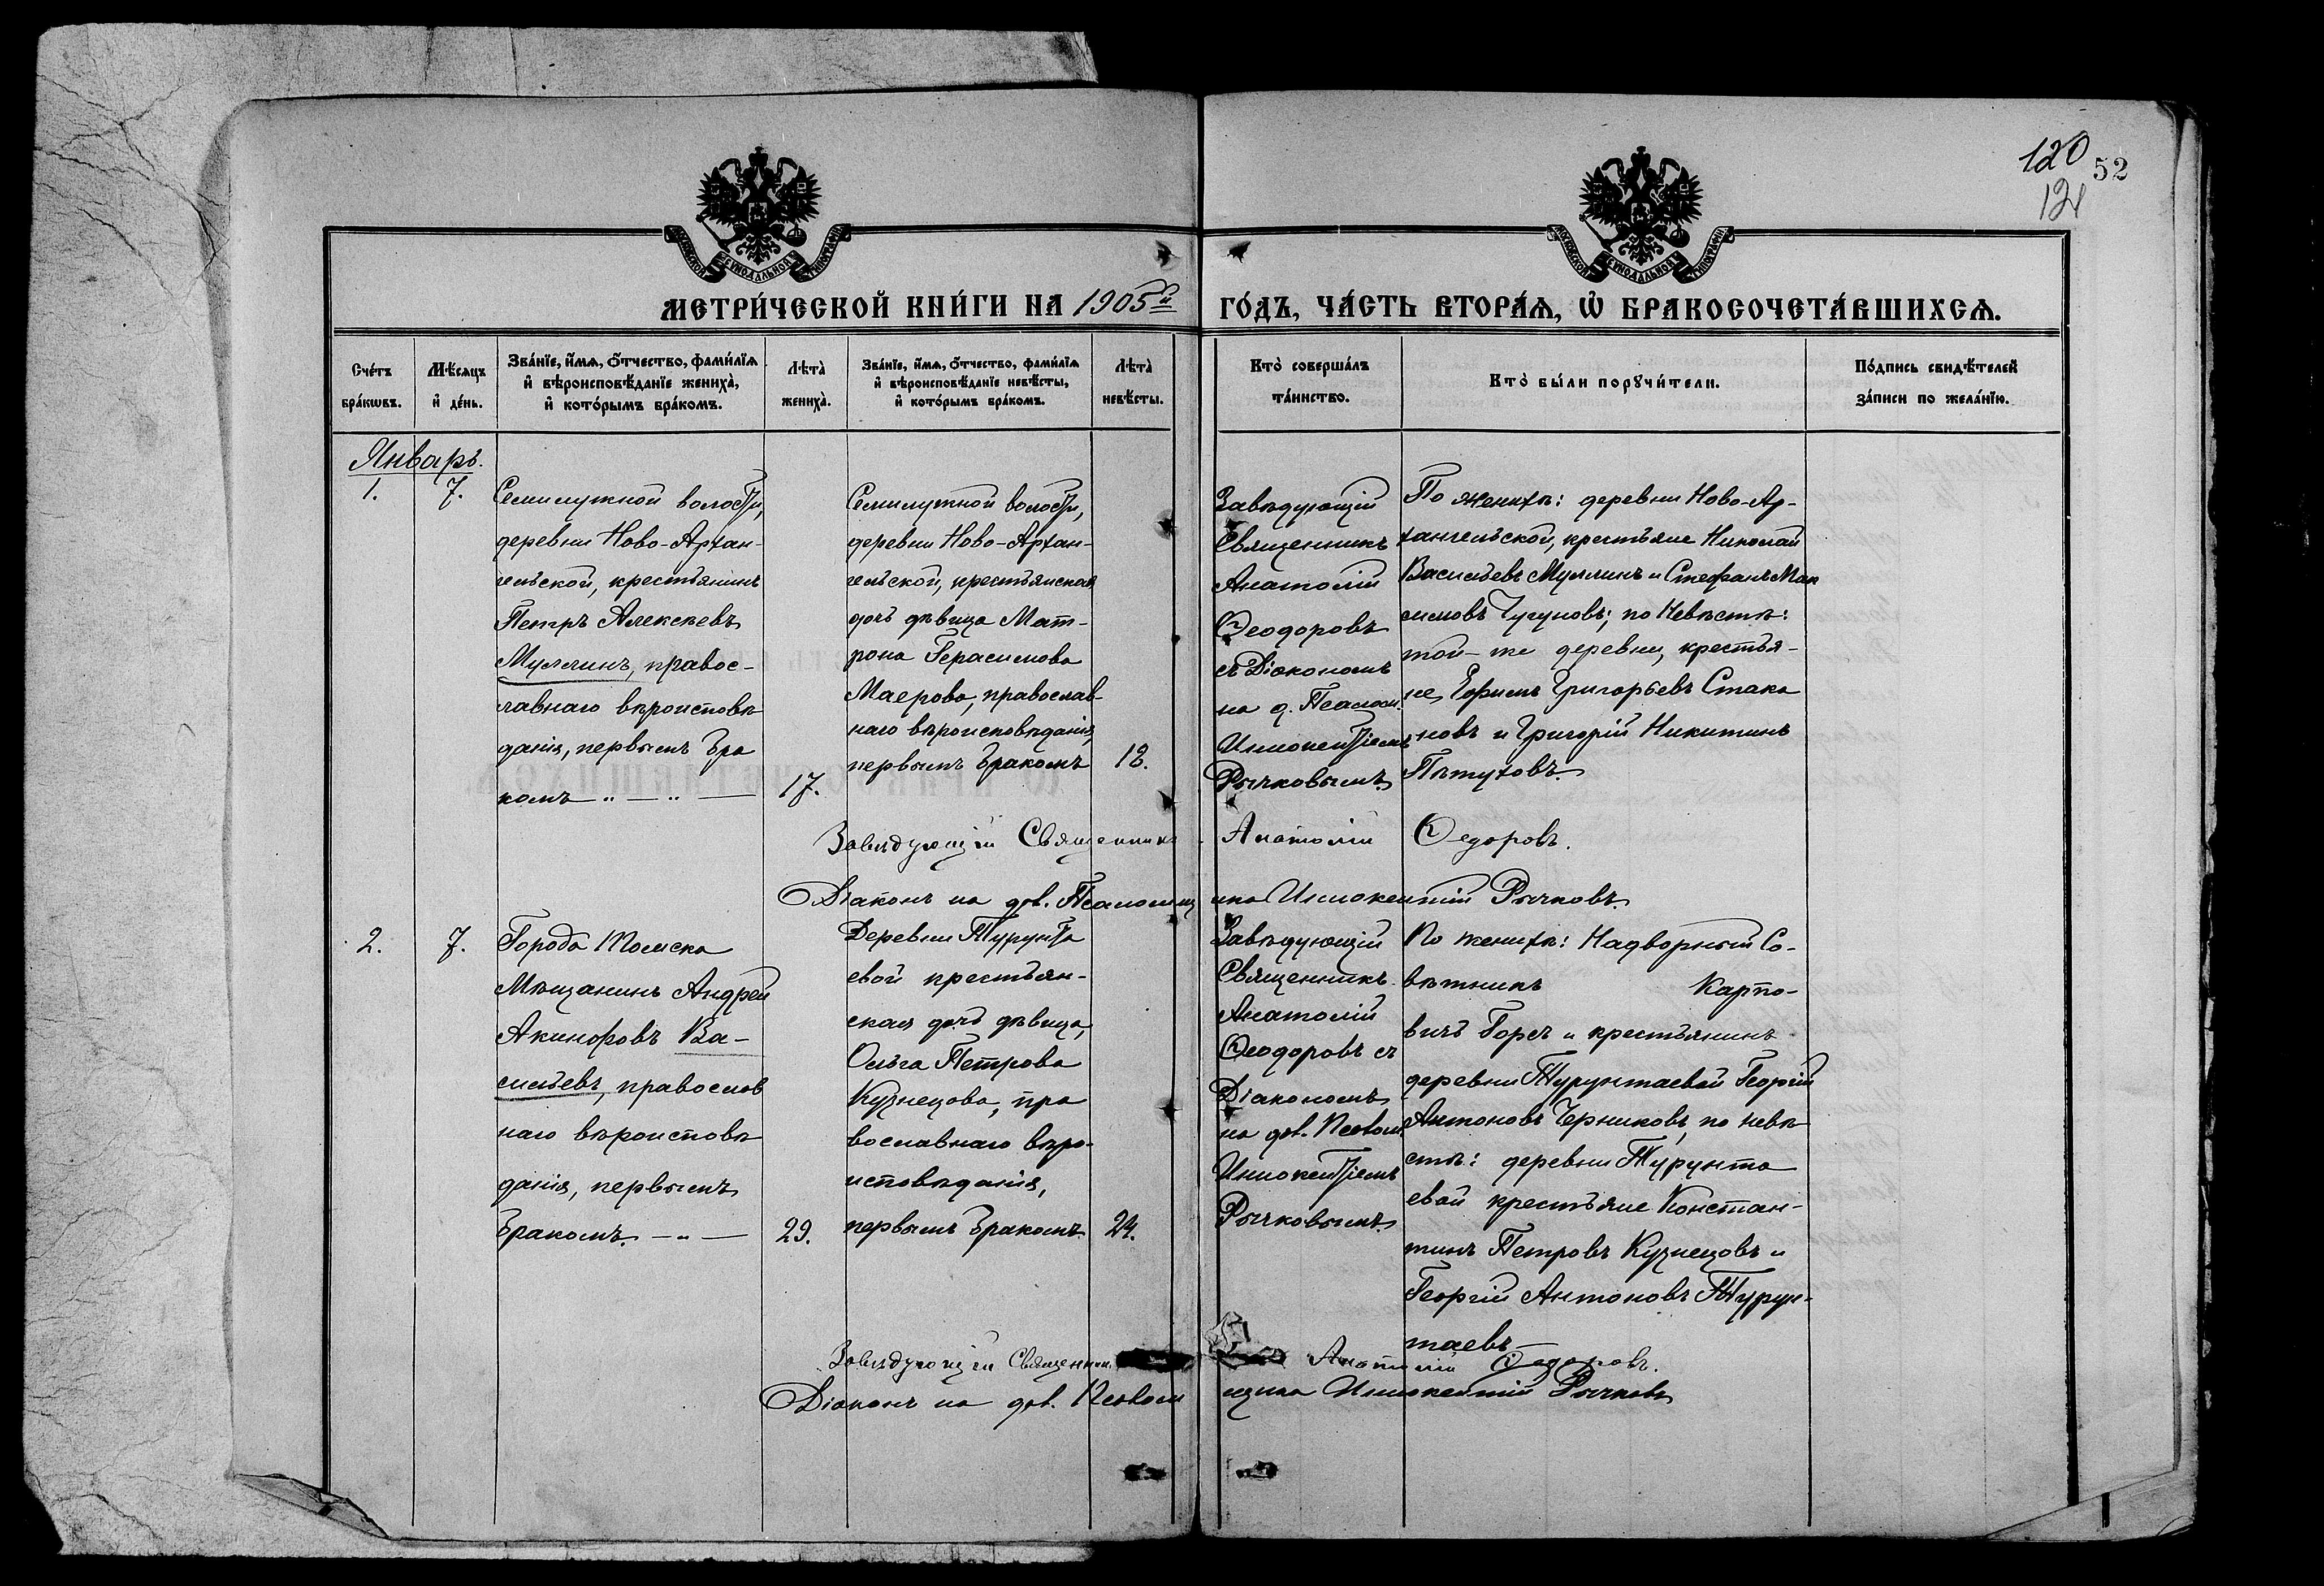 120 52
121
МОСКОВСКОЙ СУНОДАЛЬНОЙ ТИПОГРАФІИ
МОСКОВСКОЙ СУНОДАЛЬНОЙ ТИПОГРАФІИ
МЕТРИ́ЧЕСКОЙ КНИ́ГИ НА 1905й ГО́ДЪ, ЧА́СТЬ ВТОРА́Ѧ, Ѽ БРАКОСОЧЕТА́ВШИХСѦ.
Сче́тъ
бра́кѡвъ.
Мѣ́сѧцъ
и҆ де́нь.
Зва́нїе, и҆́мѧ, ѻ҆́тчество, фами́лїѧ
и҆ вѣроисповѣ́данїе жениха̀,
и҆ кото́рымъ бра́комъ.
Лѣта̀
жениха̀.
Зва́нїе, и҆́мѧ, ѻ҆́тчество, фами́лїѧ
и҆ вѣроисповѣ́данїе невѣ́сты,
и҆ кото́рымъ бра́комъ.
Лѣта̀
невѣ́сты.
Кто̀ соверша́лъ
та́инство.
Кто̀ бы́ли порꙋчи́тели.
По́дпись свидѣ́телей
за́писи по жела́нїю.
Январь.
1.
7.
Семилужной волости,
деревни Ново-Архан-
гельской, крестьянинъ
Петръ Алексѣевъ
Муллинъ, правос-
лавнаго вѣроисповѣ
данія, первымъ бра
комъ " — " —
17.
Семилужной волости,
деревни Ново-Архан-
гельской, крестьянская
дочь дѣвица Мат-
рона Герасимова
Маерова, православ-
наго вѣроисповѣданія,
первымъ бракомъ
18.
Завѣдующій
Священникъ
Анатолій
Ѳеодоровъ
съ Діакономъ
на д. Псалом.
Иннокентіемъ
Рычковымъ.
По женихѣ: деревни Ново-Ар-
хангельской, крестьяне Николай
Васильевъ Муллинъ и Стефанъ Мак
симовъ Чугуновъ; по Невѣстѣ:
той-же деревни, крестья-
не, Ефимъ Григорьевъ Стака
новъ и Григорій Никитинъ
Пѣтуховъ.
Завѣдующій Священникъ Анатолій Ѳедоровъ.
Діаконъ на дол. Псаломщика Иннокентій Рычковъ.
2.
7.
Города Томска
Мѣщанинъ Андрей
Акинфовъ Ва-
сильевъ, православ
наго вѣроисповѣ
данія, первымъ
бракомъ. — " —
29.
Деревни Турунта
евой крестьян-
ская дочь дѣвица,
Ольга Петрова
Кузнецова, пра
вославнаго вѣро-
исповѣданія,
первымъ бракомъ.
24.
Завѣдующій
Священникъ
Анатолій
Ѳеодоровъ съ
Діакономъ
на дол. Псалом.
Иннокентіемъ
Рычковымъ.
По женихѣ: Надворный Со-
вѣтникъ Карпо-
вичъ Горсъ и крестьянинъ
деревни Турунтаевой Георгій
Антоновъ Черниковъ, по невѣ
стѣ: деревни Турунта
евой крестьяне Констан-
тинъ Петровъ Кузнецовъ и
Георгій Антоновъ Турун-
таевъ
Завѣдующій Священникъ Анатолій Ѳедоровъ.
Діаконъ на дол. Псаломщика Иннокентій Рычковъ